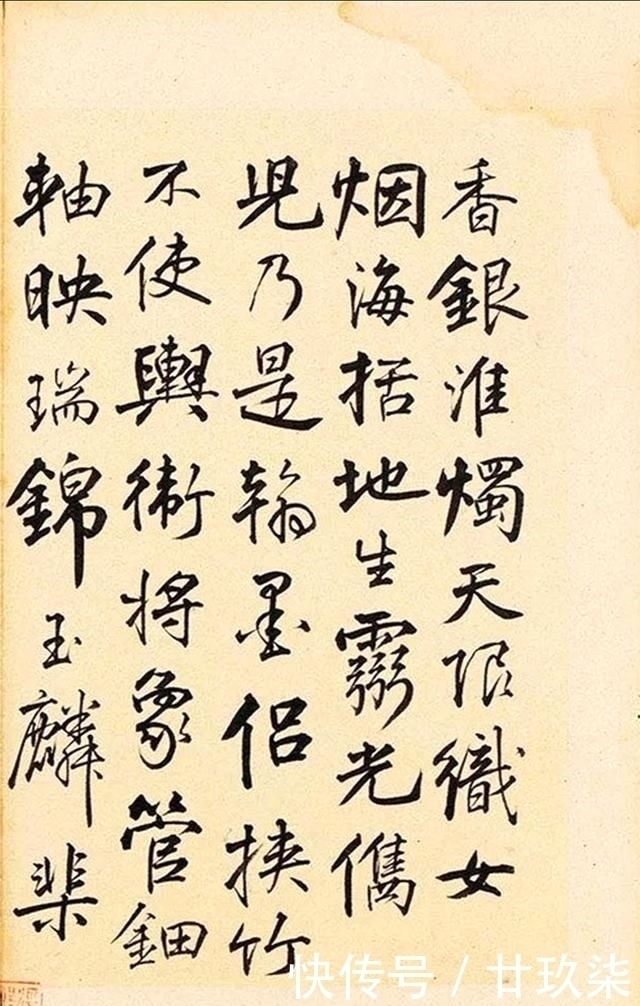 香銀淮燭天限織女
烟海括地生靈光儁
児乃是翰墨侶挾竹
不使輿衛將象管鈿
軸映瑞錦玉麟棐
快传号 / 廿玖柒